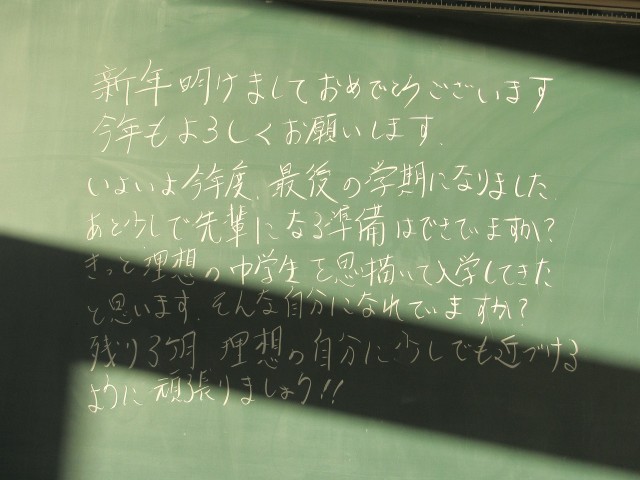 新年明けましておめでとうございます
今年もよろしくお願いします.
いよいよ今年度、最後の学期になりました.
あと少しで先輩になる準備はできてますか?
きっと理想の中学生を思い描いて入学してきた
と思います.そんな自分になれていますか?
残り3ヶ月 理想の自分に少しでも近づける
ように頑張りましょう!!